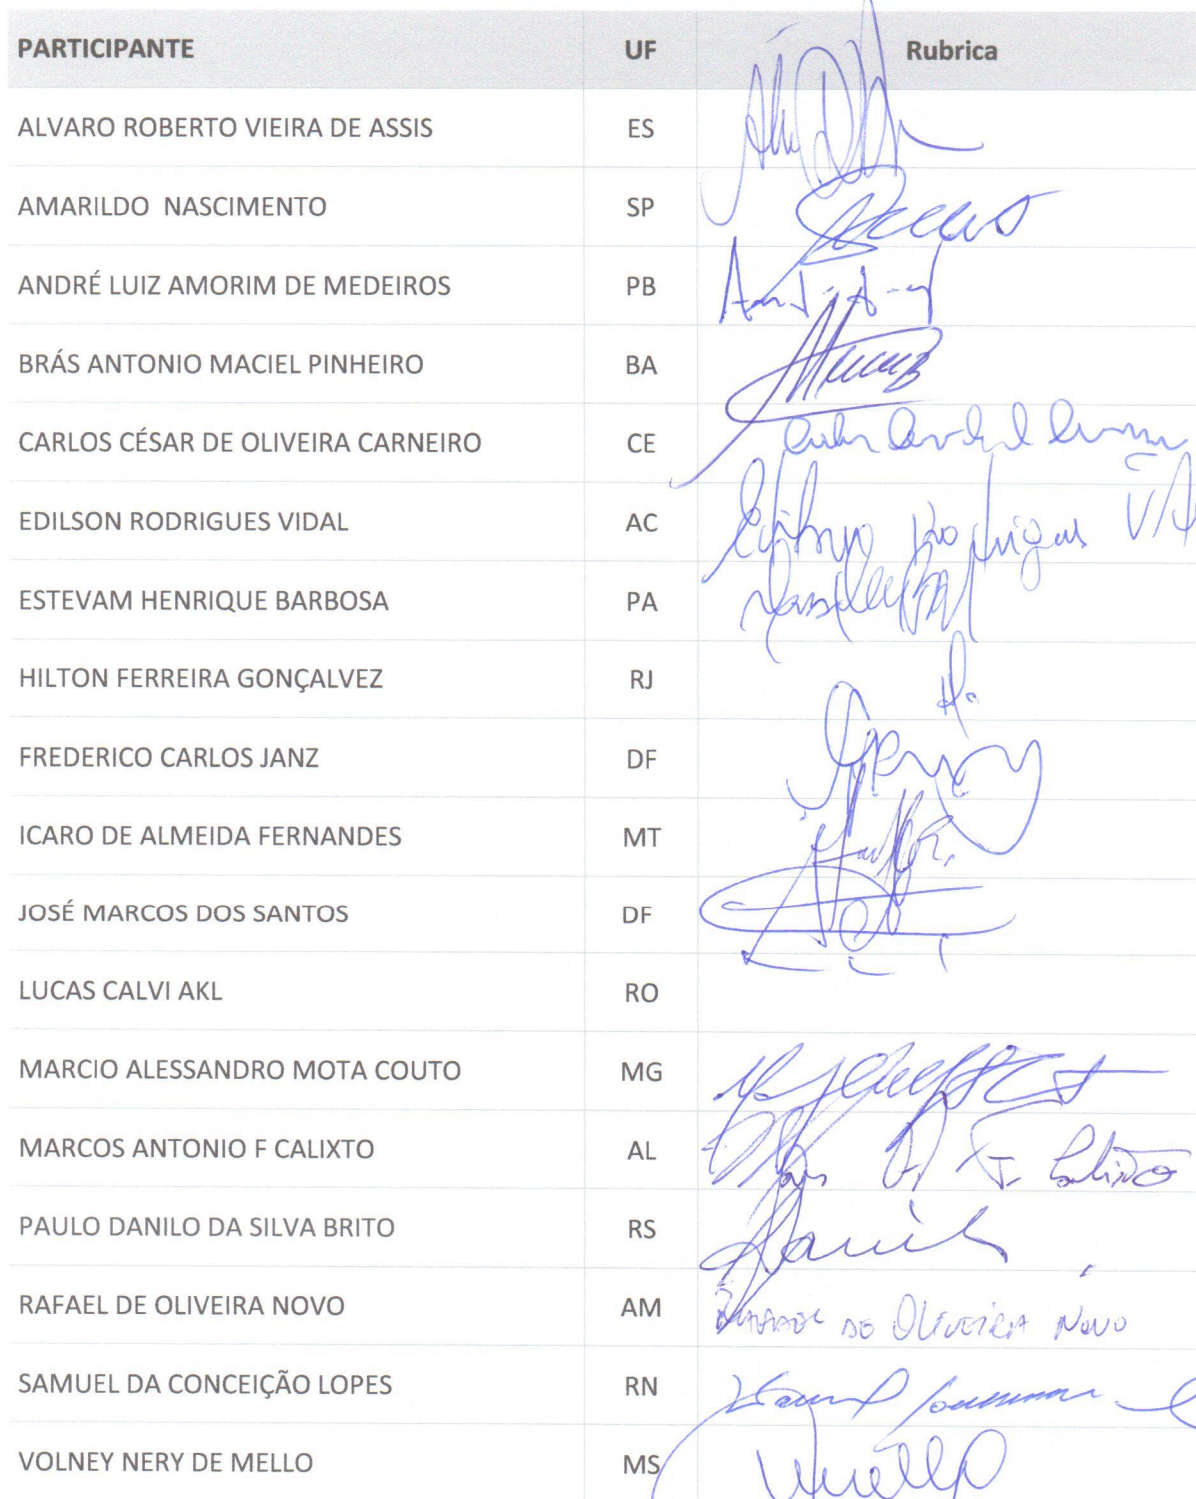 PARTICIPANTE UF Rubrica
ALVARO ROBERTO VIEIRA DE ASSIS ES
AMARILDO NASCIMENTO SP
ANDRÉ LUIZ AMORIM DE MEDEIROS PB
BRÁS ANTONIO MACIEL PINHEIRO BA
CARLOS CÉSAR DE OLIVEIRA CARNEIRO CE
EDILSON RODRIGUES VIDAL AC Edilson Rodrigues
ESTEVAM HENRIQUE BARBOSA PA
HILTON FERREIRA GONÇALVEZ RJ
FREDERICO CARLOS JANZ DF
ICARO DE ALMEIDA FERNANDES MT
JOSÉ MARCOS DOS SANTOS DF
LUCAS CALVI AKL RO
MARCIO ALESSANDRO MOTA COUTO MG
MARCOS ANTONIO F CALIXTO AL
PAULO DANILO DA SILVA BRITO RS
RAFAEL DE OLIVEIRA NOVO AM RAFAEL DE OLIVEIRA NOVO
SAMUEL DA CONCEIÇÃO LOPES RN
VOLNEY NERY DE MELLO MS